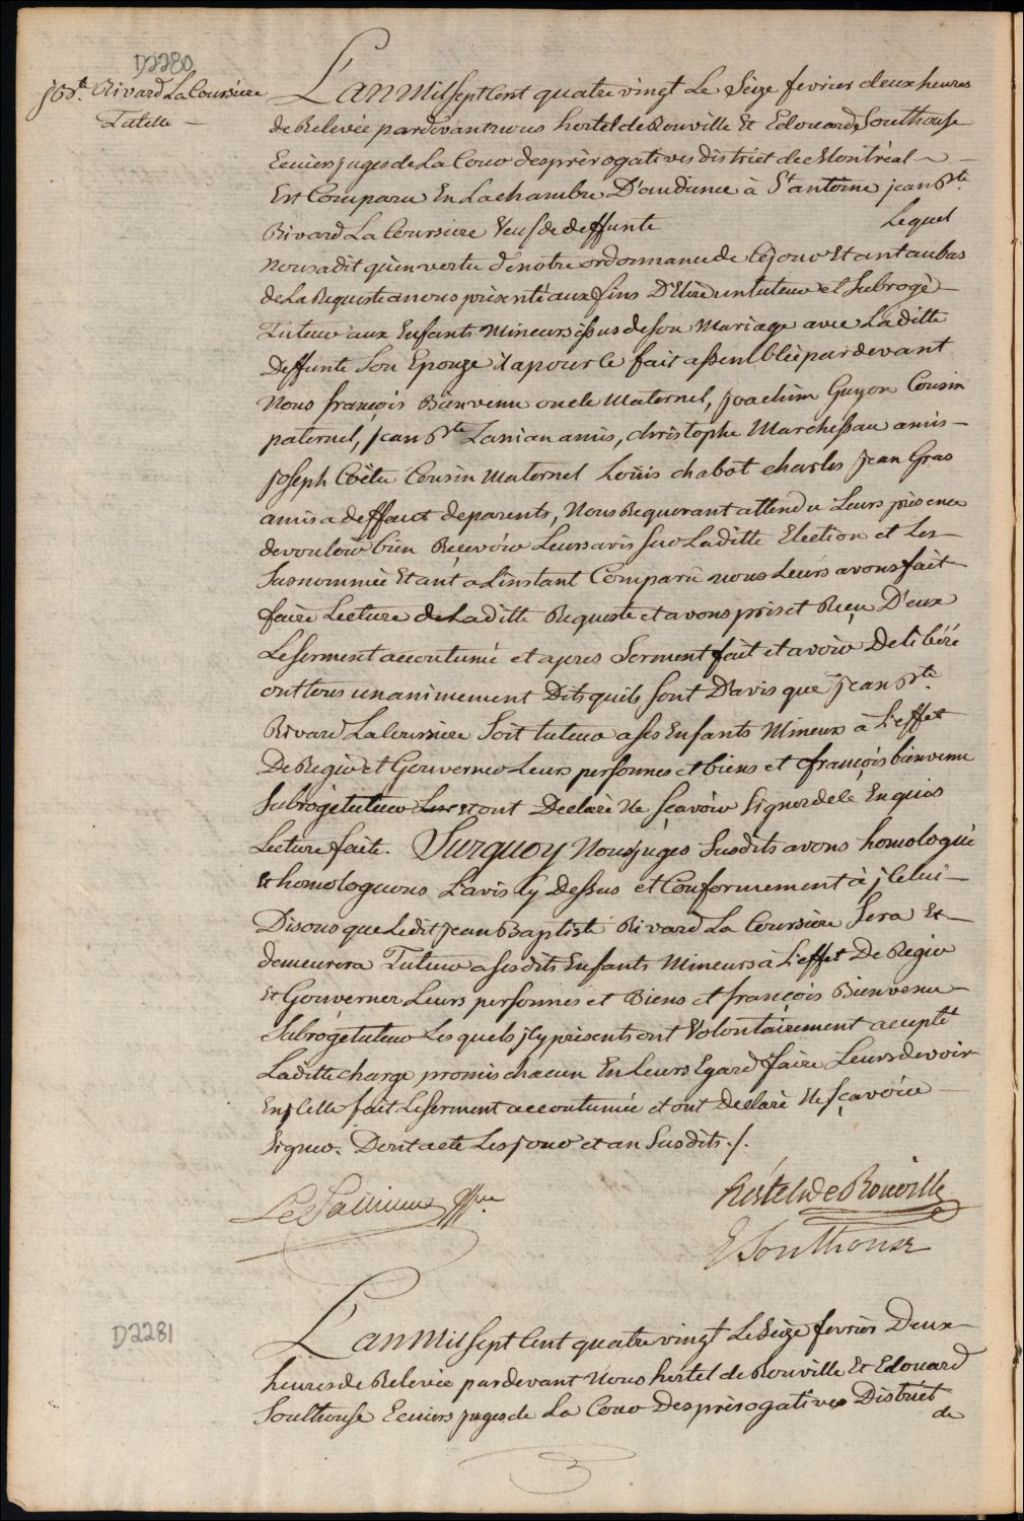 D2280
jbte. Rivard La Coursiere
Tutelle —
L'an Mil sept Cent quatre vingt Le Seize fevrier deux heures
de Relevée pardevant nous hertel de Rouville Et Edouard Southouse
Ecuiers juges de La Cour des prèrogatives district de Montrèal —
Est Comparu En La chambre D'audiance à St antoine jean Bte.
Rivard La Coursiere Veuf de deffunte Lequel
Nous a dit qu'en vertu de notre ordonnance de Cejour Etant au bas
de La Requiste a nous prèsenté aux fins D'Elire un tuteur et Subrogè —
Tuteur aux Enfants Mineurs issus de son Mariage avec Laditte
Deffunte Son Epouze il a pour le fait assemblée pardevant
Nous françois Bienvenu oncle Maternel, joachim Guyon Cousin
paternel, jean Bte Lanian amis, christophe Marchessau amis —
joseph Coëtu Cousin Maternel Loüis chabot charles jean Gras
amis a deffaut de parents, Nous Requerant attendu Leurs prèsence
de vouloir bien Reçevóir Leurs avis sur Laditte Election et Les —
Susnommée Etant a L'instant Comparu nous Leurs avons fait
faire Lecture de Laditte Requeste et avons pris et Reçu D'eux
Le serment accoutumé et apres Serment fait et avoir Deliberé
ont tous unanimement Dits quils sont D'avis que jean Bte.
Rivard La Coursiere Soit tuteur a ses Enfants Mineurs à L'effet
De Regir et Gouverner Leurs personnes et biens et françois bienvenu
Subrogè tuteur et ont Declarè Ne sçavoir Signer de ce Enquis
Lecture faite. Surquoy Nous juges Susdits avons homologué
Et homologuons L'avis Cy Dessus et Conformement à jCelui —
Disons que Ledit jean Baptiste Rivard La Coursiere Sera Et
demeurera Tuteur a ses dits Enfants Mineurs à L'effet De Regir
Et Gouverner Leurs personnes et Biens et françois Bienvenu —
Subrogè tuteur Les quels jCy prèsents ont Volontairement acceptè
Laditte charge promis chacun En Leurs Egard faire Leurs devoir
En jCelle fait Le serment accoutumée et ont Declarè Ne sçavóir
Signer. Dont acte Les jour et an Susdits ./.
hertel de Rouville
E Southouse
D2281
L'an Mil Sept Cent quatre vingt Le Seize fevrier Deux —
heures de Relevée pardevant Nous hertel de Rouville Et Edouard
Southouse Ecuiers juges de La Cour Des prèrogatives District
de